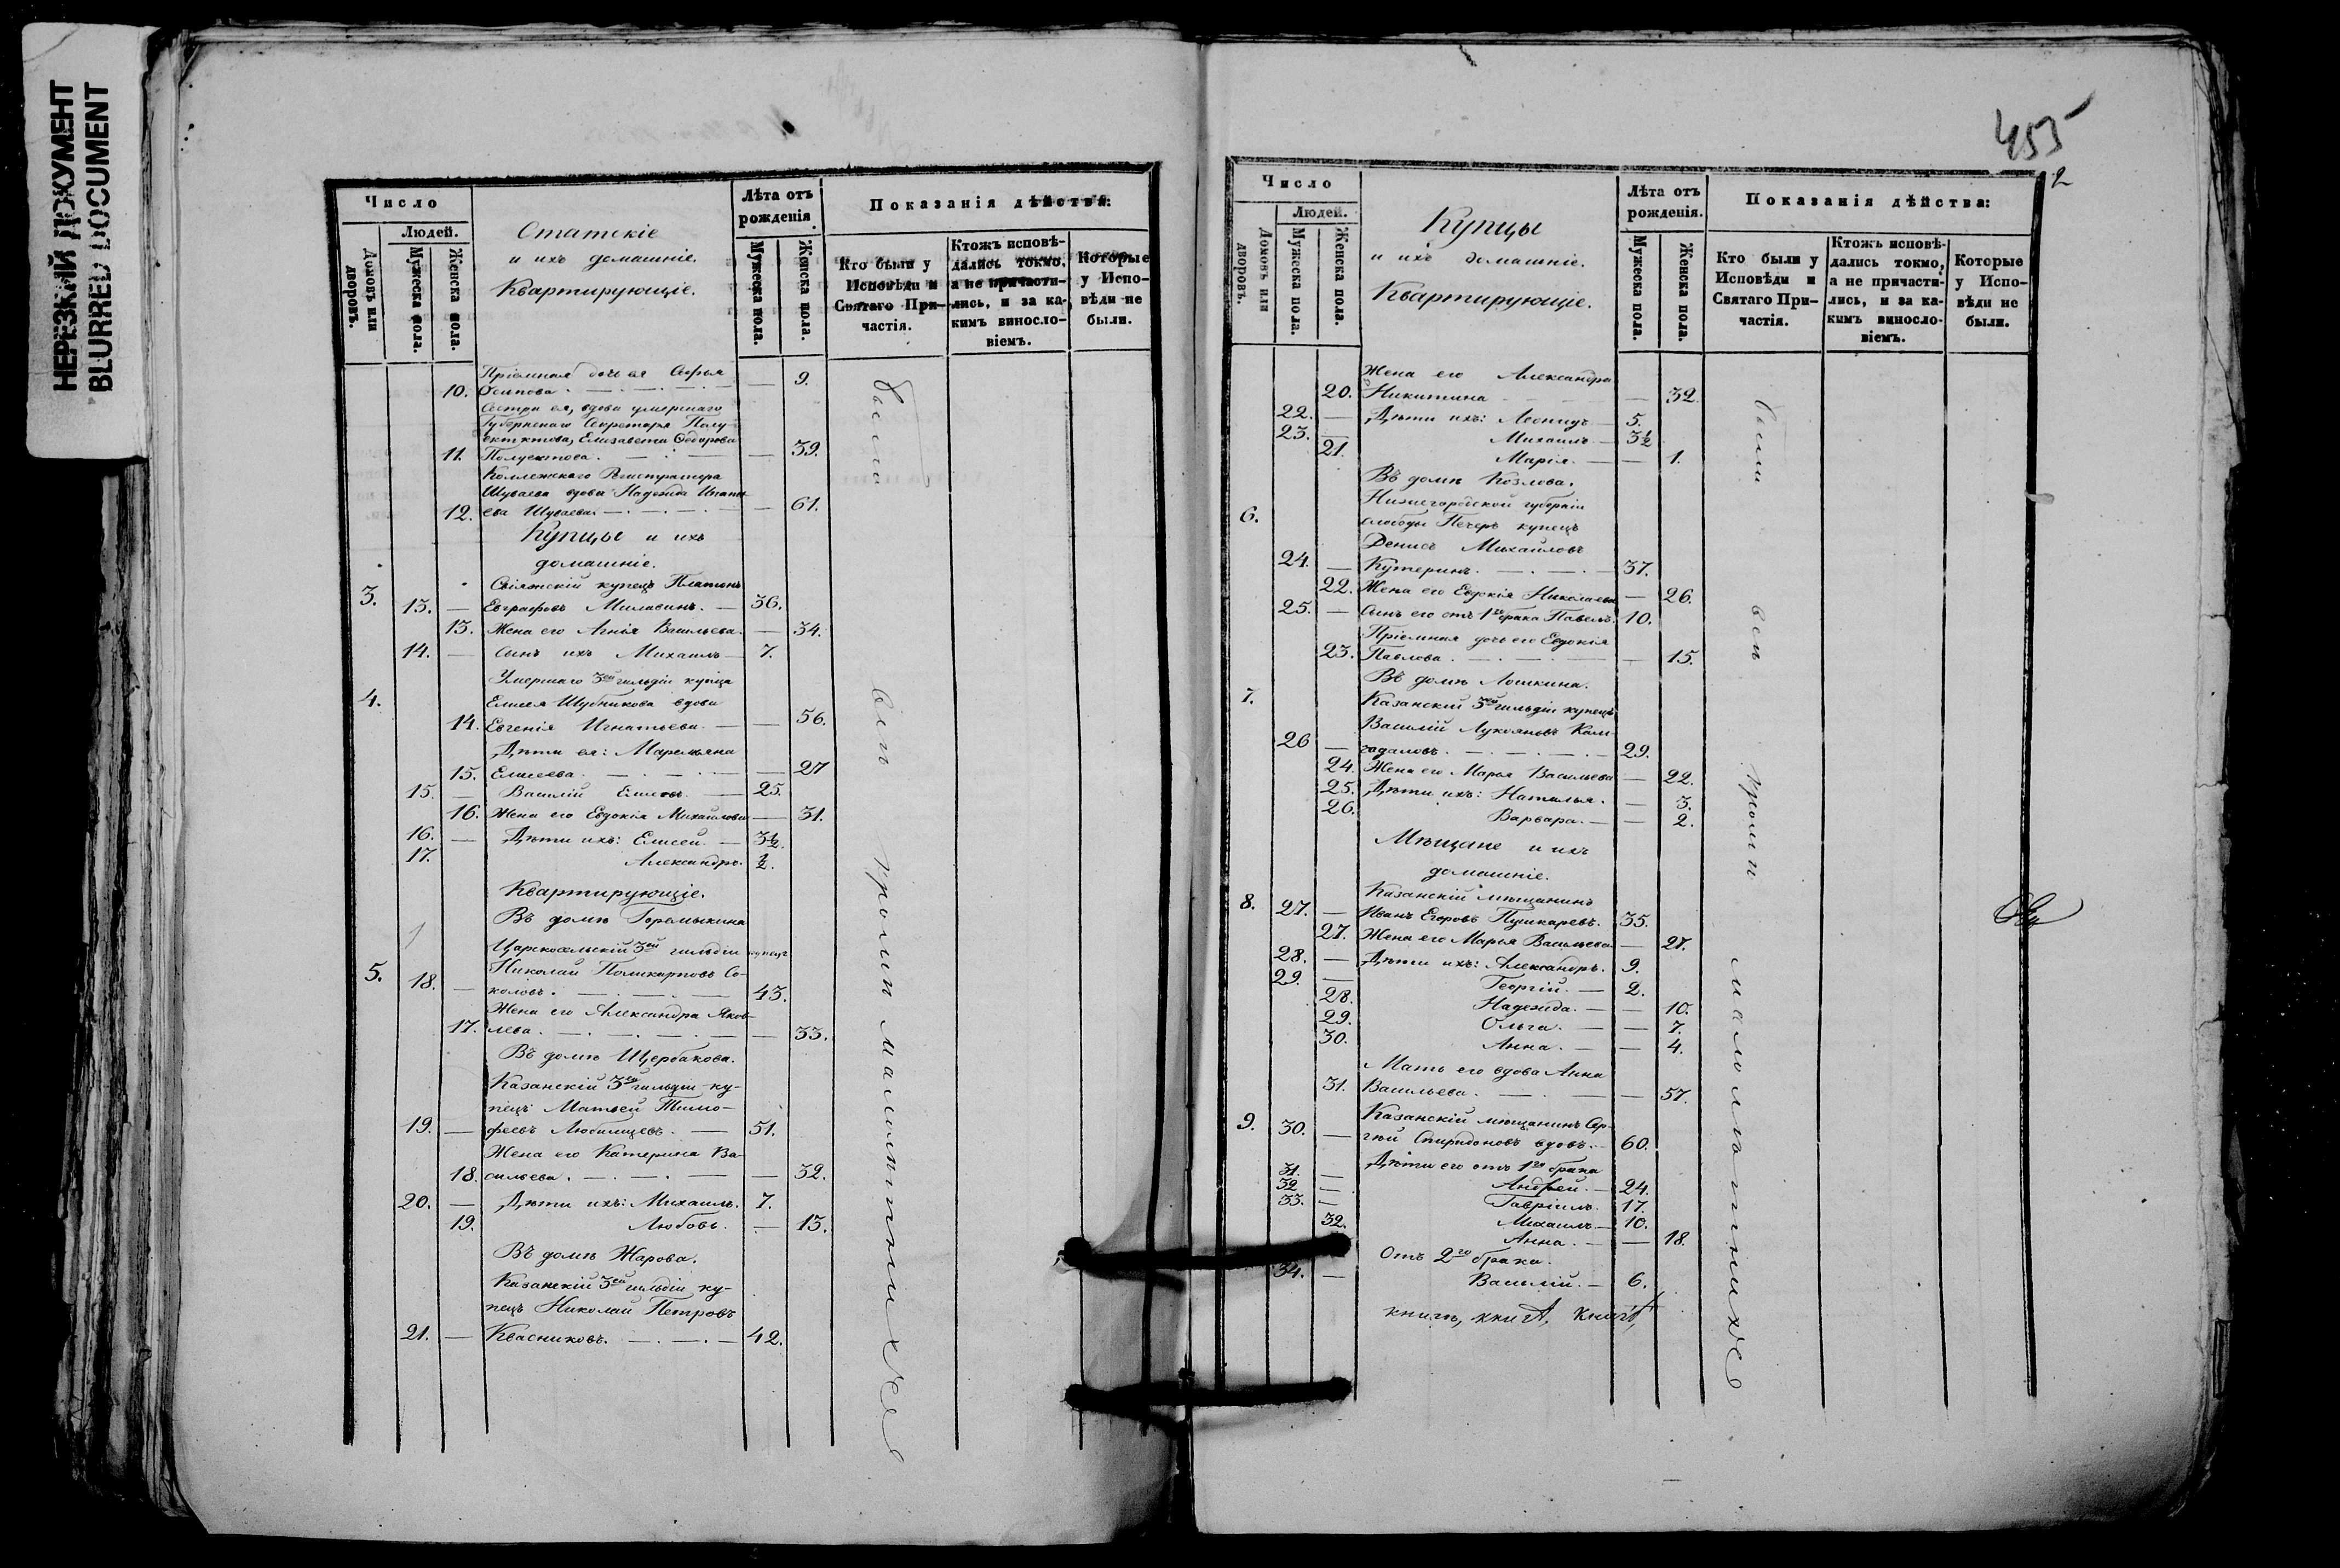 НЕРЕЗКИЙ ДОКУМЕНТ
BLURRED DOCUMENT
Число
Людей.
Домовъ или дворовъ.
Мужеска пола.
Женска пола.
Статскіе
и ихъ домашніе.
Квартирующіе.
Лѣта отъ рожденія
Мужеска пола.
Женска пола.
Показанія дѣйства:
Кто были у Исповѣди и Святаго Причастія.
Ктожъ исповѣдались токмо, а не причастились, и за какимъ винословіемъ.
Которые у Исповѣди не были.
Пріемная дочь ея Софья
10. Осипова. — 9.
Сестра ея, вдова умершаго
Губернскаго Секретаря Полу-
ектктова, Елизавета Ѳедорова
11. Полуектова. — 39.
Коллежскаго Регистратора
Шуваева вдова Надежда Игнать-
12. ева Шуваева. — 61.
Купцы и ихъ
домашніе.
3. Свіяжскій купецъ Платонъ
13. — Евграфовъ Милавинъ. — 36.
13. Жена его Агнія Васильева. — 34.
14. — Сынъ ихъ Михаилъ — 7.
Умершаго 3ей гильдіи купца
4. Елисея Шубникова вдова
14. Евгенія Игнатьева. — 56.
Дѣти ея: Маремьяна
15. Елисеева. — 27
15. — Василій Елисеевъ — 25.
16. Жена его Евдокія Михайлова — 31.
16. — Дѣти ихъ: Елисей. — 3½.
17. Александръ. ½.
Квартирующіе.
Въ домѣ Горемыкина
Царскосельскій 3ей гильдіи купецъ
5. Николай Поликарповъ Со-
18. — коловъ. — 43.
Жена его Александра Яков-
17. лева. — 33.
Въ домѣ Щербакова.
Казанскій 3ей гильдіи ку-
пецъ Матвей Тимо-
19. — феевъ Любимцевъ. — 51.
Жена его Катерина Ва-
18. сильева. — 32.
20. — Дѣти ихъ: Михаилъ. 7.
19. Любовь. — 13.
Въ домѣ Жарова.
Казанскій 3ей гильдіи ку-
пецъ Николай Петровъ
21. — Квасниковъ. — 42.
были
всѣ кромѣ малолѣтнихъ
455
2
Число
Людей.
Домовъ или дворовъ.
Мужеска пола.
Женска пола.
Купцы
и ихъ домашніе.
Квартирующіе.
Лѣта отъ рожденія.
Мужеска пола.
Женска пола.
Показанія дѣйства:
Кто были у Исповѣди и Святаго Причастія.
Ктожъ исповѣдались токмо, а не причастились, и за какимъ винословіемъ.
Которые у Исповѣди не были.
Жена его Александра
20. Никитина — 32.
22. — Дѣти ихъ: Леонидъ — 5.
23. — Михаилъ — 3½
21. Марія. — 1.
Въ домѣ Козлова.
6. Нижегородской губерніи
слободы Печеръ купецъ
Денисъ Михайловъ
24. — Кутеринъ. — 37.
22. Жена его Евдокія Николаева — 26.
25. — Сынъ его отъ 1го брака Павелъ. 10.
Пріемная дочь его Евдокія
23. Павлова. — 15.
Въ домѣ Лошкина.
7. Казанскій 3ей гильдіи купецъ
Василій Лукояновъ Кал-
26 — гадаловъ. — 29.
24. Жена его Марья Васильева — 22.
25. Дѣти ихъ: Наталья. — 3.
26. Варвара. — 2.
Мѣщане и ихъ
домашніе.
8. Казанскій мѣщанинъ
27. — Иванъ Егоровъ Пушкаревъ. 35.
27. Жена его Марья Васильева — 27.
28. — Дѣти ихъ: Александръ. 9.
29. — Георгій. — 2.
28. Надежда. — 10.
29. Ольга. — 7.
30. Анна. — 4.
Мать его вдова Анна
31. Васильева. — 57.
9. Казанскій мѣщанинъ Сер-
30. — гѣй Спиридоновъ вдовъ. — 60.
Дѣти его отъ 1го брака
31. — Андрей. — 24.
32 — Гавріилъ. 17.
33. — Михаилъ — 10.
32. Анна. — 18.
Отъ 2го брака.
34. — Василій. — 6.
были всѣ кромѣ малолѣтнихъ